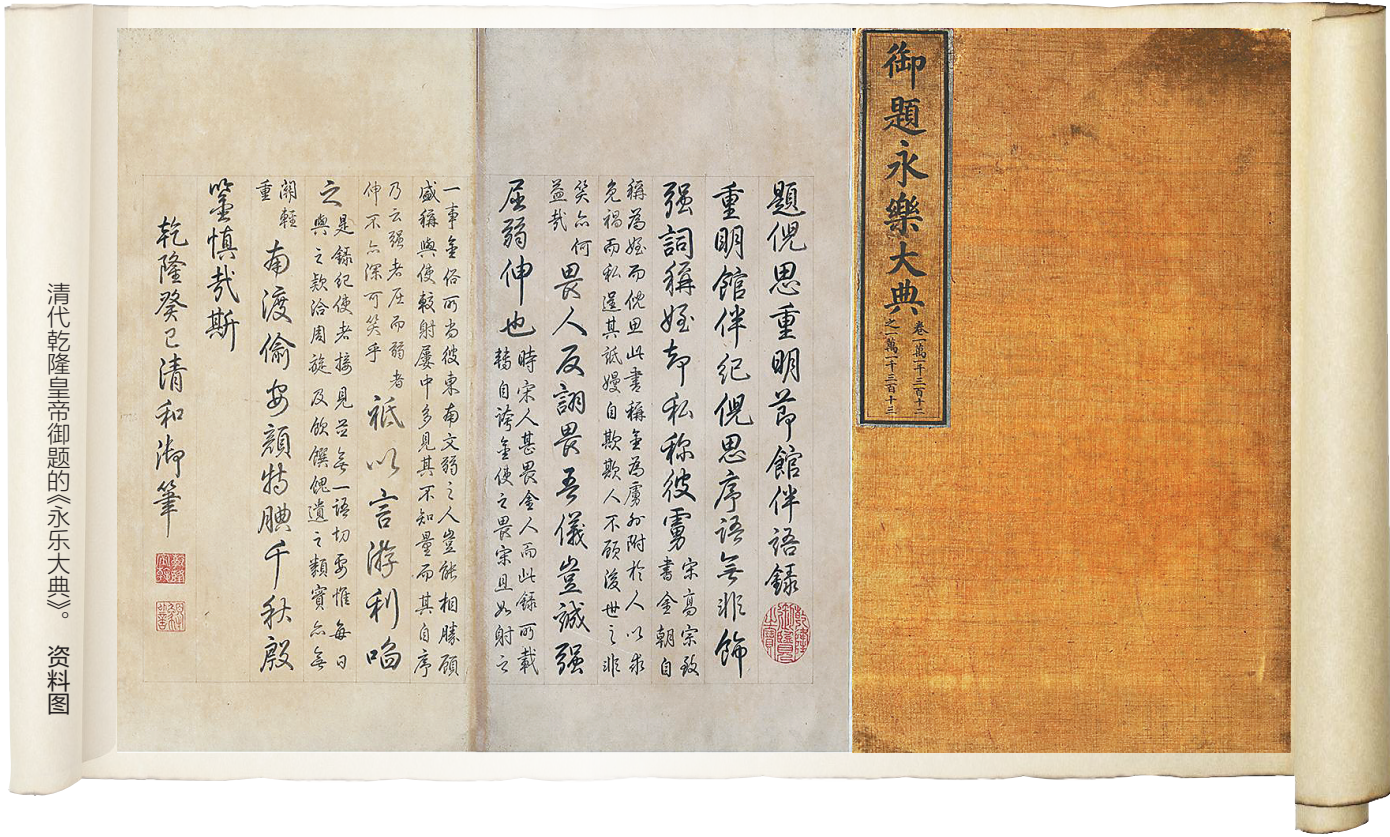 御題永樂大典
卷一萬一千三百十二
之一萬一千三百十三
題倪思重明節館伴語錄
重明館伴紀倪思序語無非飾
强詞稱姪却私称彼虜
宋高宗致
書金朝自
稱為姪而倪思此書稱金為虜外附於人以求
免禍而私逞其詆嫚自欺欺人不顧後世之非
笑亦何
益哉
畏人反詡畏吾儀豈誠强
屈弱伸也
時宋人甚畏金人而此錄所載
輒自誇金使之畏宋且如射之
一事金俗所尚彼東南文弱之人豈能相勝顧
盛稱與使較射屢中多見其不知量而其自序
乃云强者屈而弱者
伸不亦深可笑乎
祗以言游利啗
之
是錄紀使者接見並無一語切要惟每日
與之欵洽周旋及飲饌餽遺之類實亦無
關輕
重
南渡偷安顏特腆千秋殷
鑒慎哉斯
乾隆癸巳清和御筆
清代乾隆皇帝御题的《永乐大典》。 资料图